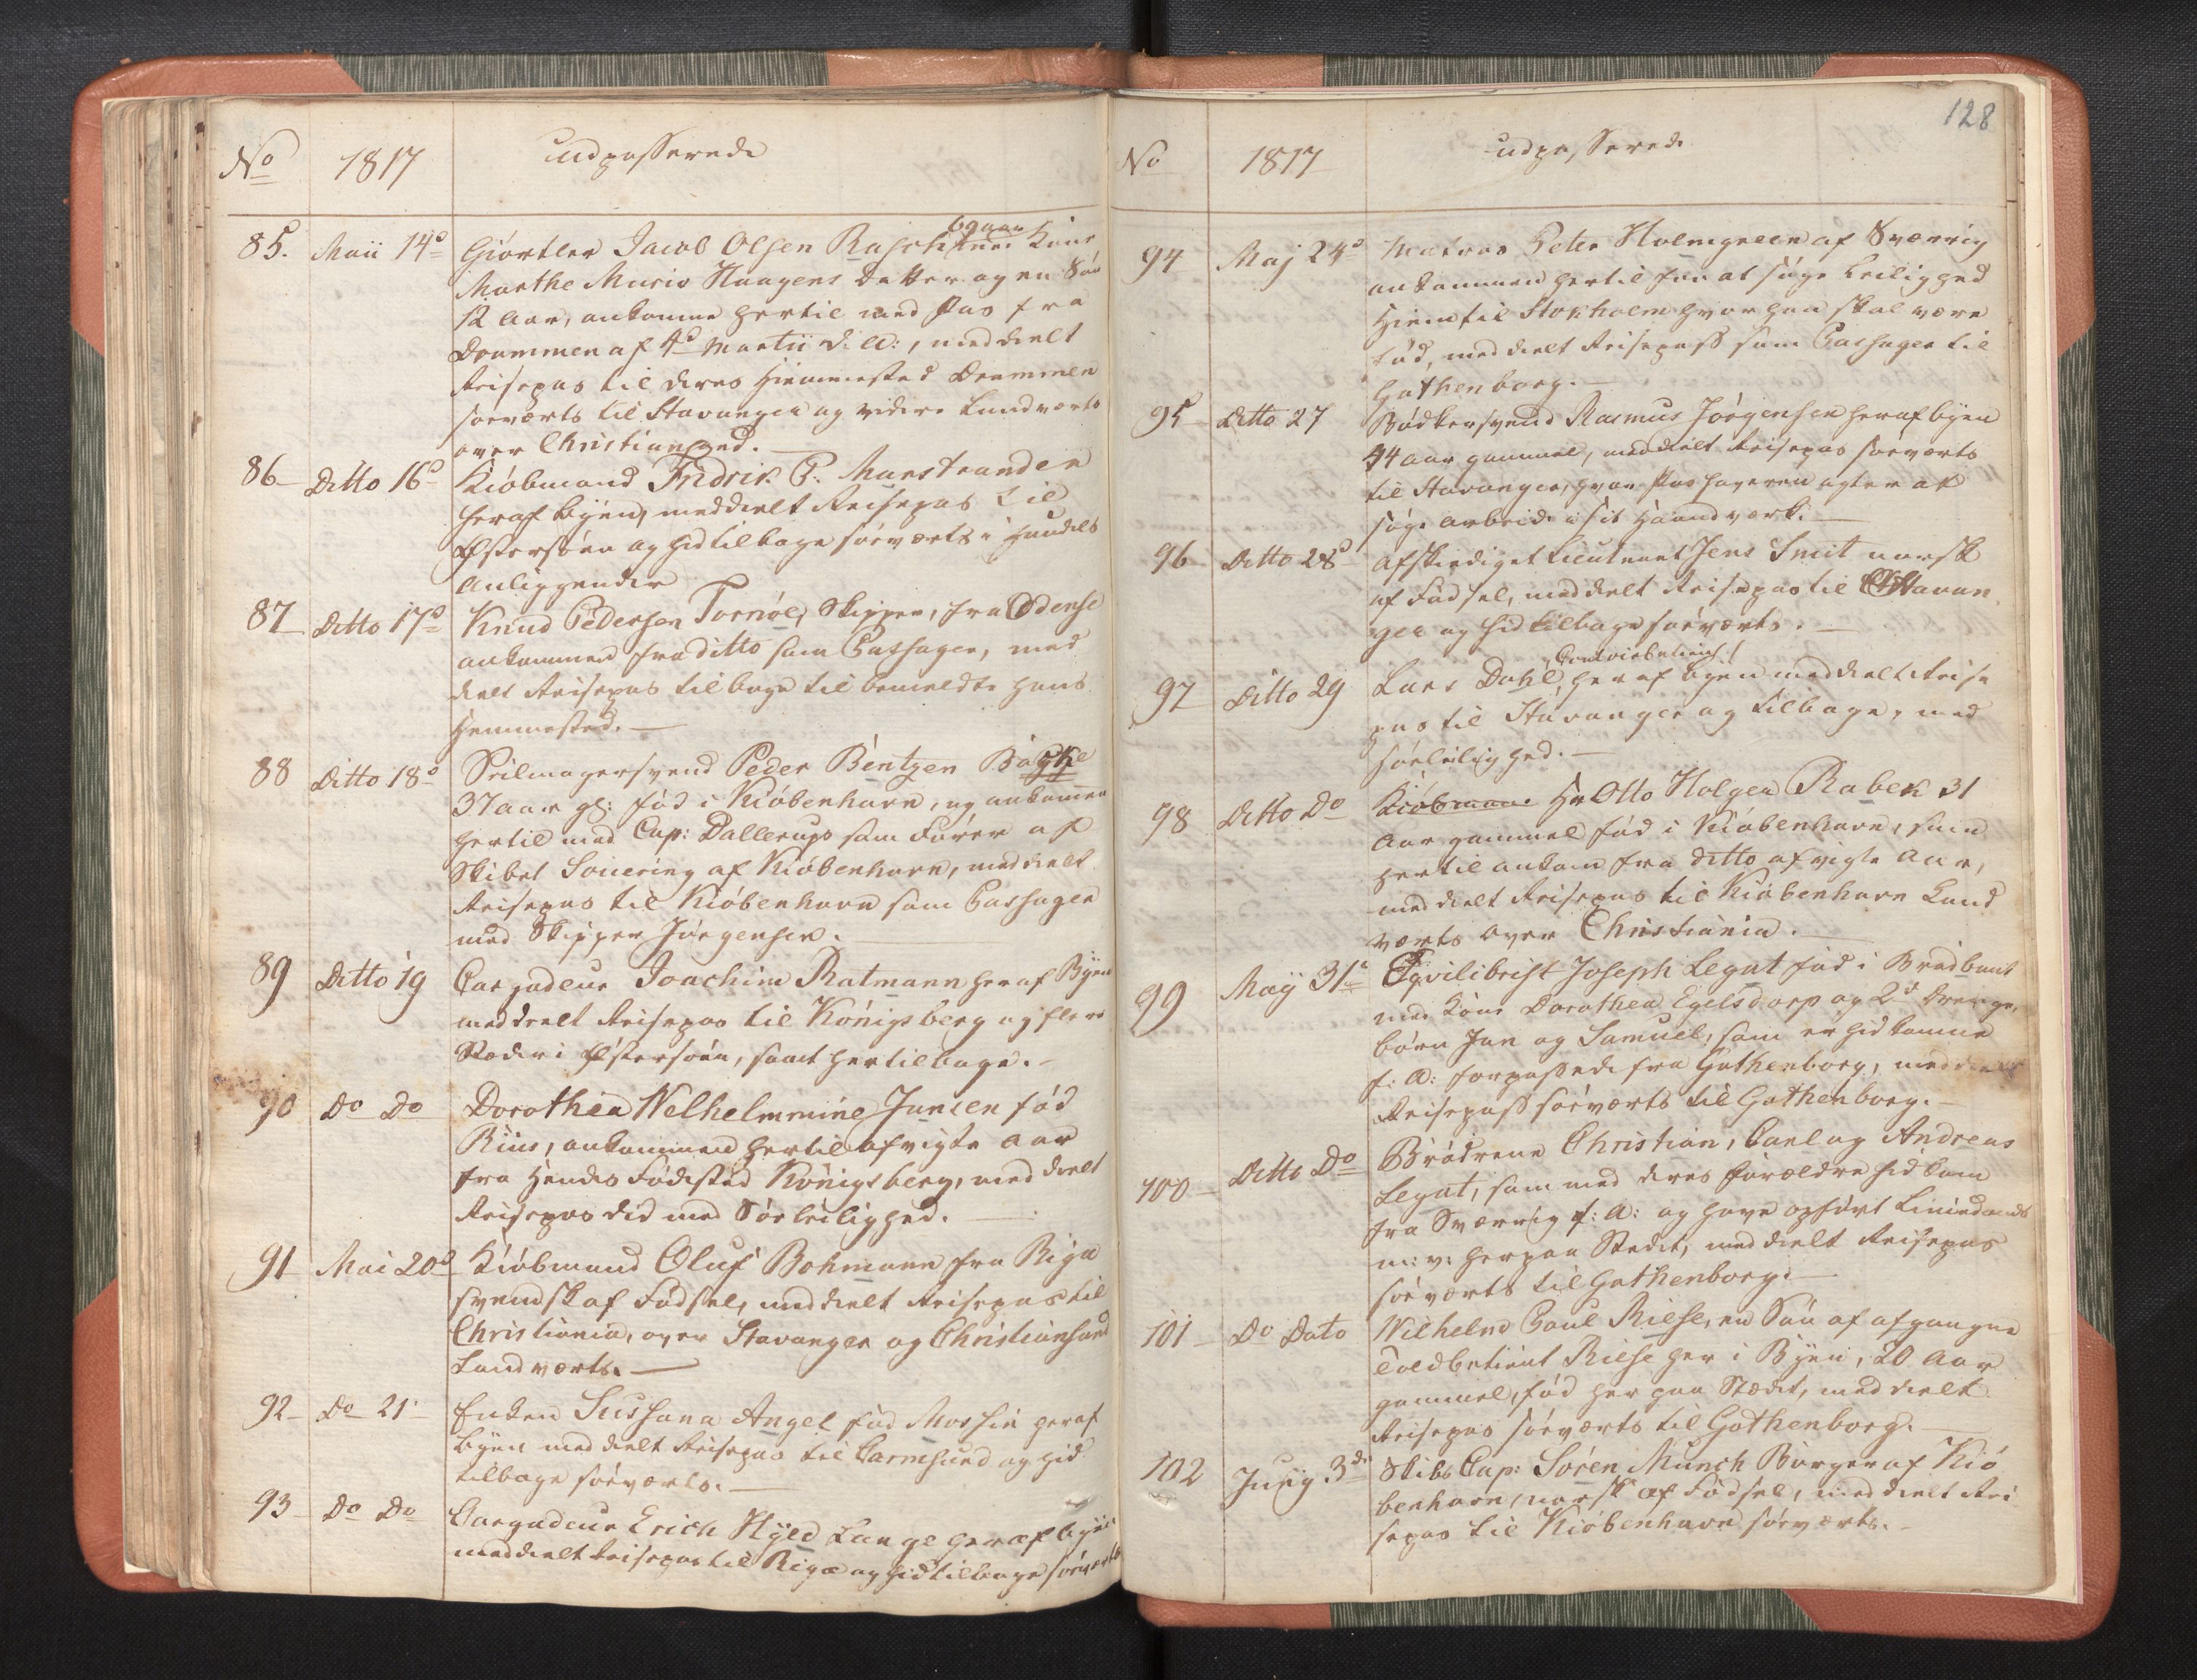 No 1817 udpasserede
85. Maii 14d Giørtler Jacob Olsen Rasch med Kone
Marthe Maria Haagens Datter og en Søn
12 Aar, ankomne hertil med Pas fra
Drammen af 4d Martii d: A:, meddeelt
Reisepas til deres Hiemmested Drammen
søeværts til Stavanger og videre Landværts
over Christiansand.
86 Ditto 16d Kiøbmand Fredrik P. Marstrander
heraf Byen, meddeelt Reisepas til
Østersøen og hid tilbage søeværts i Handels
Anliggender
87 Ditto 17d Knud Pedersen Tornøe, Skipper, fra Odense
ankommen fra ditto som Passager, med
deelt Reisepas tilbage til bemeldte hans
Hemmested.
88 Ditto 18d Seilmagersvend Peder Bentzen Bagke
37 aar gl: fød i Kiøbenhavn, og ankommen
hertil med Cap: Dallerups som Fører af
Skibet Souering af Kiøbenhavn, meddeelt
Reisepas til Kiøbenhavn som Passager
med Skipper Jørgensen.
89 Ditto 19 Cargadeur Joachim Ratmann heraf Byen
meddeelt Reisepas til Königsberg og flere
Stæder i Østersøen, samt hertilbage.
90 Do Do Dorothea Welhelmmine Jansen fød
Riis, ankommen hertil afvigte Aar
fra Hendes Fødested Königsberg, meddeelt
Reisepas did med Søeleilighed.
91 Mai 20d Kiøbmand Oluf Bohmann fra Riga
svensk af Fødsel, meddeelt Reisepas til
Christiania, over Stavanger og Christiansand
Landværts.
92 Do 21 Enken Sussana Angel fød Mossin heraf
Byen meddeelt Reisepas til Carmsund og hid
tilbage søeværts.
93 Do Do Cargadeur Erich Hyld Lange heraf byen
meddeelt Reisepas til Riga og hid tilbage søeværts
128
No 1817 udpasserede
94 Maj 24d Matros Peter Holmgreen af Sværrig
ankommen hertil for at søge Leilighed
Hiem til Stokholm hvor han skal være
fød, meddeelt Reisepass som Passager til
Gothenborg.
95 Ditto 27 Bødkersvend Rasmus Jørgensen heraf byen
44 aar gammel, meddeelt Reisepas søeværts
til Stavanger, hvor Pashaveren agter at
søge Arbeide i sit Haandværk.
96 Ditto 28d Afskediget Lieutenant Jens Smit norsk
af Fødsel, meddeelt Reisepas til Stavan
ger og hid tilbage søeværts.
97 Ditto 29 Lars Dahl, heraf byen meddeelt Reise
pas til Stavanger og tilbage, med
søeleilighed.
98 Ditto Do Kiøbmann Hr Otto Holger Rabek 31
Aar gammel fød i Kiøbenhavn, som
hertil ankom fra ditto afvigte Aar,
meddeelt Reisepas til Kiøbenhavn Land
værts over Christiania.
99 Maij 31d Eqvilibrist Joseph Legat fød i Brabant
med Kone Dorothea Egelsdorp og 2d Drenge
børn Jan og Samuel, som er hid komne
f: A: forpassede fra Gothenborg, meddeelt
Reisepass søeværts til Gothenborg.
100 Ditto Do Brødrene Christian, Carl og Andreas
Legat, som med deres Forældre hid kom
fra Sværrig f: A: og have opført Liniedands
m: v: her paa Stedet, meddeelt Reisepas
søeværts til Gothenborg.
101 Do Dato Wilhelm Paul Riese, en Søn af afgangne
Toldbetient Riese her i Byen, 20 Aar
gammel, fød her paa Stædet, meddeelt
Reisepas søeværts til Gothenborg.
102 Junij 3de Skibs Cap: Søren Munch Borger af Kiø
benhavn, norsk af Fødsel, meddeelt Rei
sepas til Kiøbenhavn søeværts.